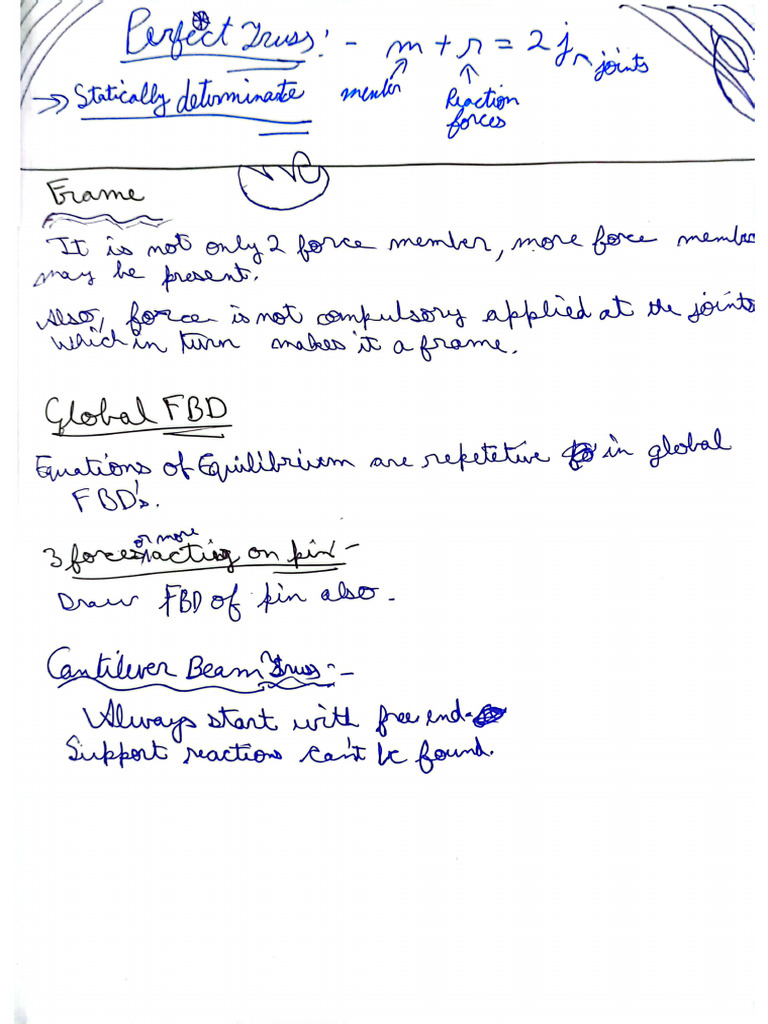 Perfect Truss:- m + r = 2j
joints
→ Statically determinate member Reaction forces
Frame
It is not only 2 force member, more force member
may be present.
Also, force is not compulsory applied at the joints
which in turn makes it a frame.
Global FBD
Equations of Equilibrium are repetetive in global
FBD's.
or more
3 forces acting on pin-
Draw FBD of pin also.
Cantilever Beam Truss:-
Always start with free end.
Support reactions can't be found.